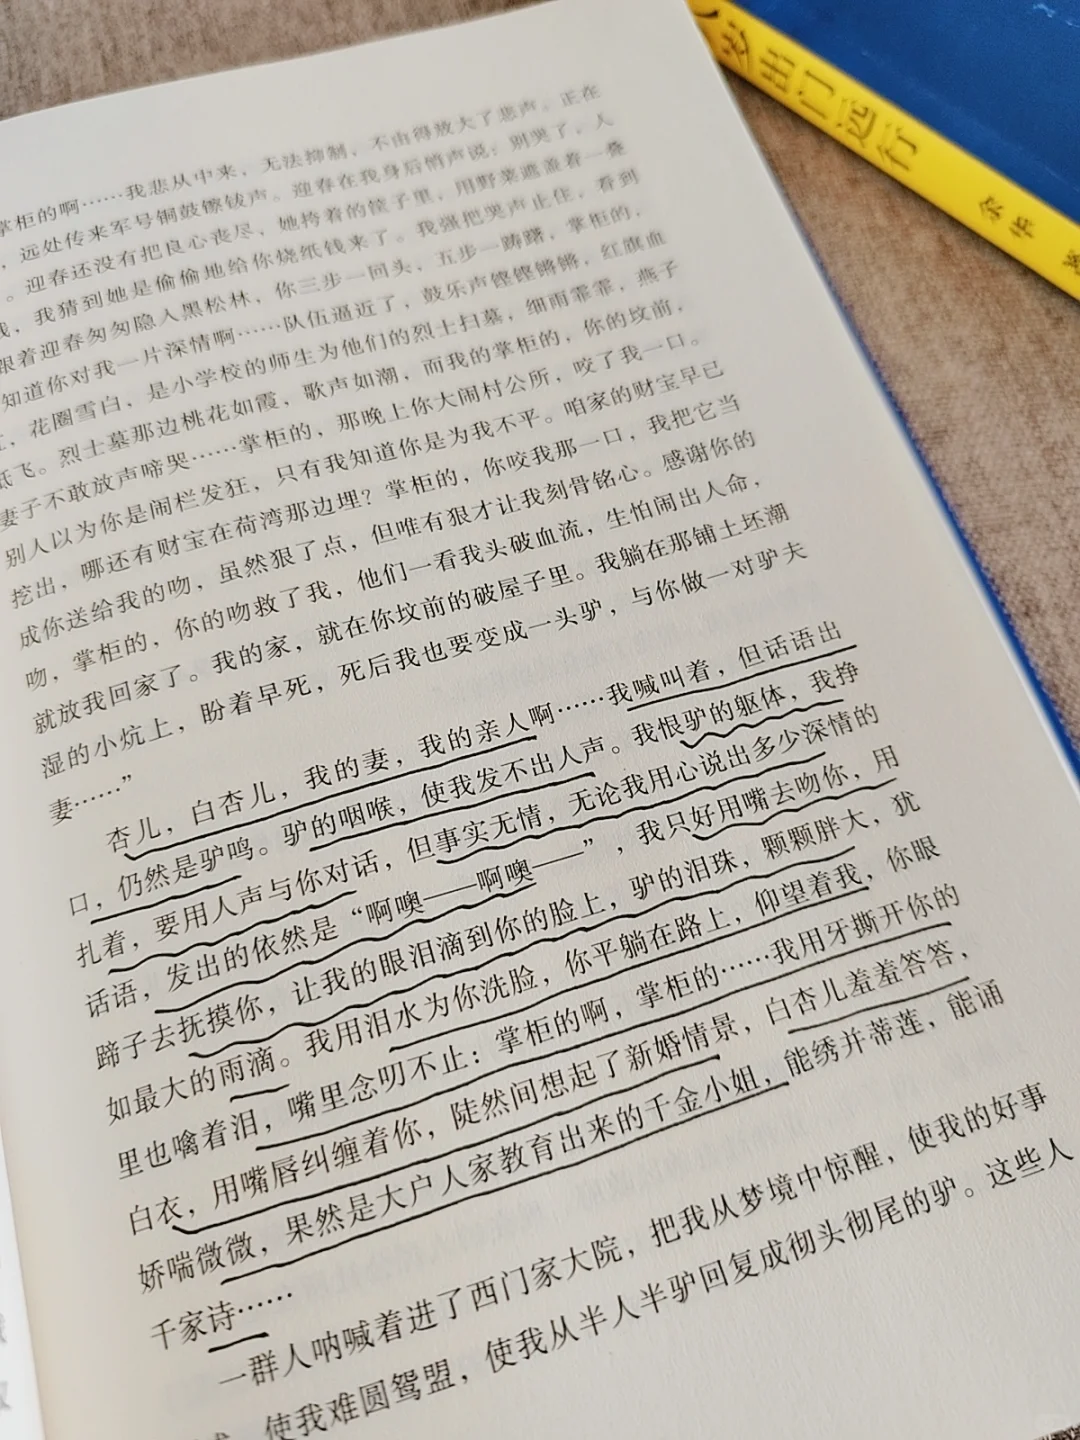 掌柜的啊……我悲从中来，无法抑制，不由得放大了悲声。正在
，远处传来军号铜鼓镲钹声。迎春在我身后悄声说：别哭了，人
。迎春还没有把良心丧尽，她挎着的筐子里，用野菜遮盖着一叠
，我猜到她是偷偷地给你烧纸钱来了。我强把哭声止住，看到
跟着迎春匆匆隐入黑松林，你三步一回头，五步一踌躇，掌柜的，
知道你对我一片深情啊……队伍逼近了，鼓乐声铿铿锵锵，红旗血
，花圈雪白，是小学校的师生为他们的烈士扫墓，细雨霏霏，燕子
低飞。烈士墓那边桃花如霞，歌声如潮，而我的掌柜的，你的坟前，
妻子不敢放声啼哭……掌柜的，那晚上你大闹村公所，咬了我一口。
别人以为你是闹栏发狂，只有我知道你是为我不平。咱家的财宝早已
挖出，哪还有财宝在荷湾那边埋？掌柜的，你咬我那一口，我把它当
成你送给我的吻，虽然狠了点，但唯有狠才让我刻骨铭心。感谢你的
吻，掌柜的，你的吻救了我，他们一看我头破血流，生怕闹出人命，
就放我回家了。我的家，就在你坟前的破屋子里。我躺在那铺土坯潮
湿的小炕上，盼着早死，死后我也要变成一头驴，与你做一对驴夫
妻……”
杏儿，白杏儿，我的妻，我的亲人啊……我喊叫着，但话语出
口，仍然是驴鸣。驴的咽喉，使我发不出人声。我恨驴的躯体，我挣
扎着，要用人声与你对话，但事实无情，无论我用心说出多少深情的
话语，发出的依然是“啊噢——啊噢——”，我只好用嘴去吻你，用
蹄子去抚摸你，让我的眼泪滴到你的脸上，驴的泪珠，颗颗胖大，犹
如最大的雨滴。我用泪水为你洗脸，你平躺在路上，仰望着我，你眼
里也噙着泪，嘴里念叨不止：掌柜的啊，掌柜的……我用牙撕开你的
白衣，用嘴唇纠缠着你，陡然间想起了新婚情景，白杏儿羞羞答答，
娇喘微微，果然是大户人家教育出来的千金小姐，能绣并蒂莲，能诵
千家诗……
一群人呐喊着进了西门家大院，把我从梦境中惊醒，使我的好事
，使我难圆鸳盟，使我从半人半驴回复成彻头彻尾的驴。这些人
岁出门远行
余华